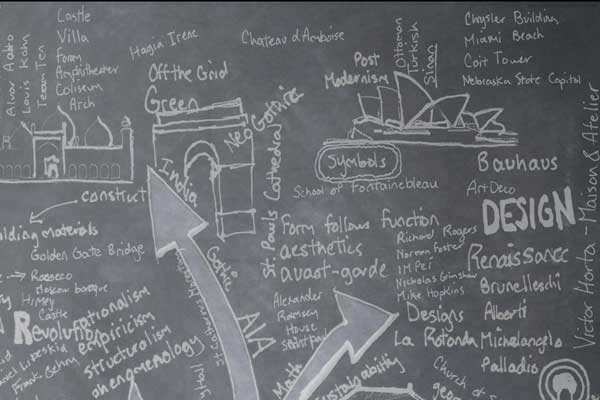 Castle
Villa
Forum
Amphitheater
Coliseum
Arch
Alvar Aalto
Louis Kahn
Team Ten
Hagia Irene
Off the Grid
Green
Chateau d'Amboise
Post
Modernism
Ottoman
Turkish
Sinan
Chrysler Building
Miami Beach
Coit Tower
Nebraska State Capitol
Neo Gothic
India
St. Pauls Cathedral
Symbols
School of Fontainebleau
Bauhaus
Art Deco
DESIGN
Victor Horta - Maison & Atelier
construct
building materials
Golden Gate Bridge
Rococco
Moscow baroque
Himeji
Castle
Revolution
rationalism
empiricism
structuralism
phenomenology
Frank Gehry
Gothic
AIA
Form follows Function
aesthetics
avant-garde
Richard Rogers
Norman Foster
IM Pei
Nicholas Grimshaw
Mike Hopkins
Alexander
Ramsey
House
Designs
Renaissance
Brunelleschi
Alberti
La Rotonda
Michelangelo
Palladio
Math
Sustainability
Church of
geo